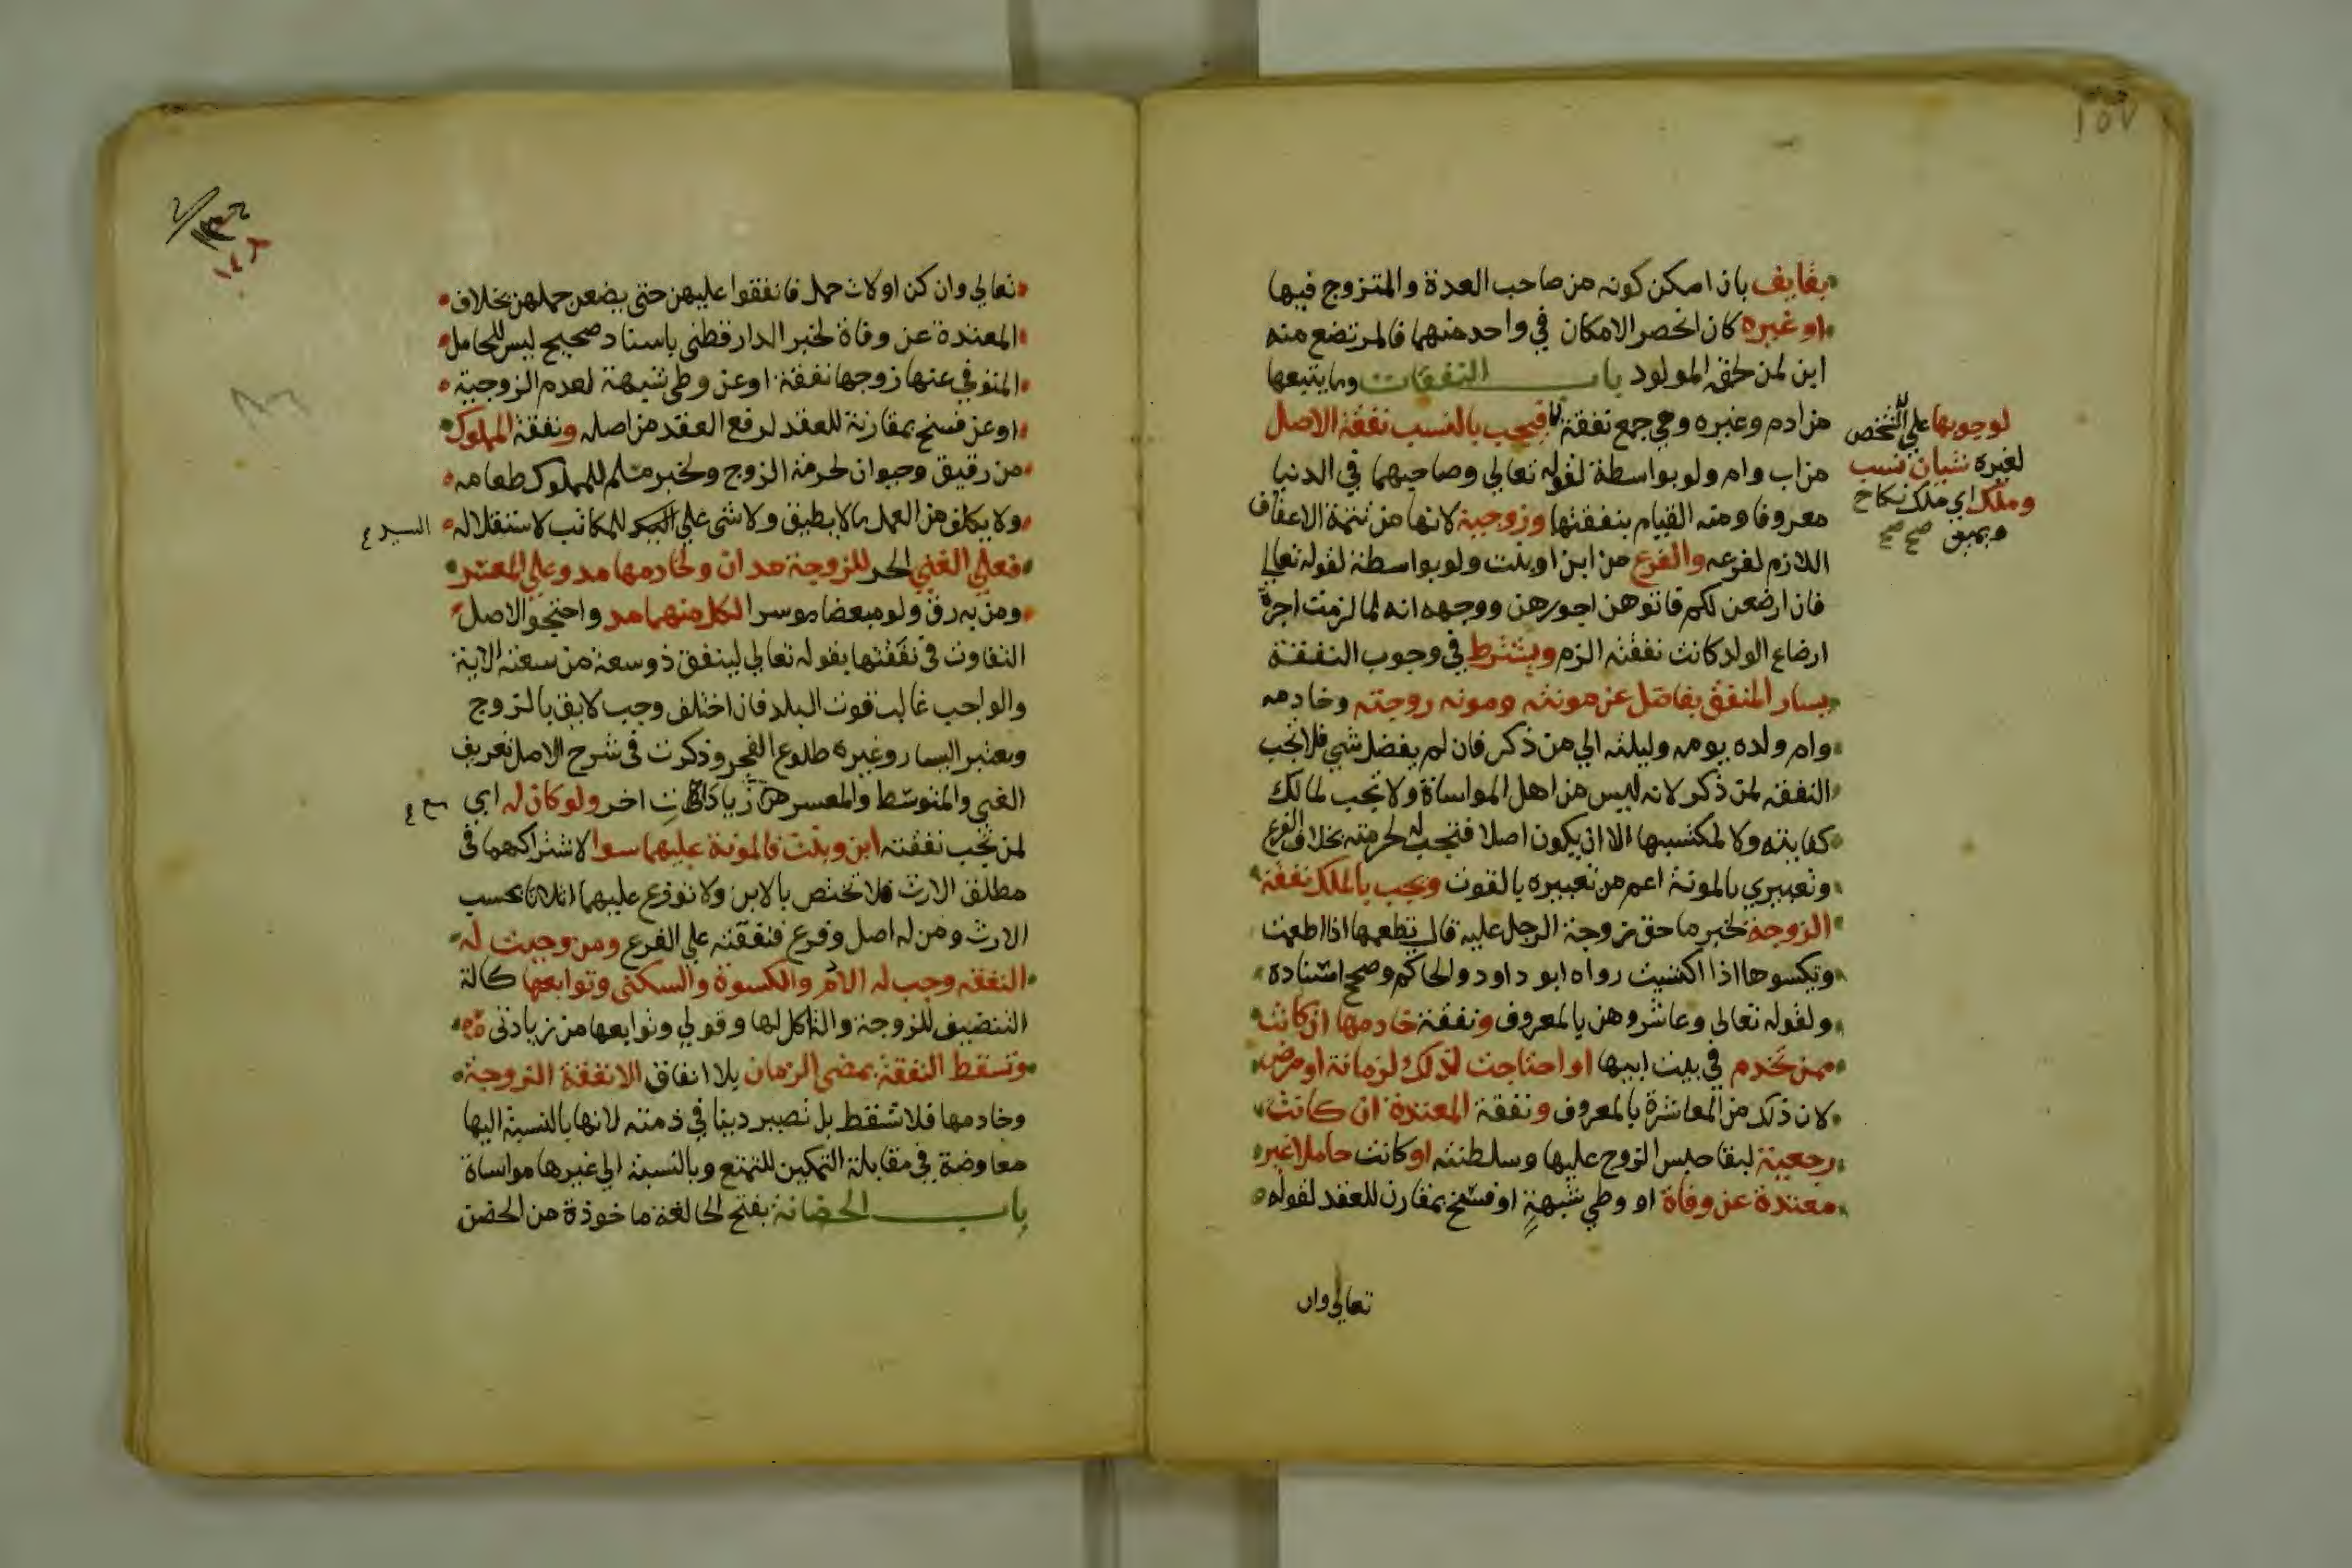 ١٥٧
بقايف بان امكن كونه من صاحب العدة والمتزوج فيها
او غيره كان انحصر الامكان في واحد منهما فالمرتضع منه
ابن لمن لحقه المولود باب النفقات وما يتبعها
من ادم وغيره وهي جمع نفقة فيجب بالنسب نفقة الاصل
من اب وام ولو بواسطة لقوله تعالي وصاحبهما في الدنيا
معروفا ومنه القيام بنفقتها وزوجية لانها من تتمة الاعفاف
اللازم لفرعه والفرع من ابن او بنت ولو بواسطة لقوله تعالي
فان ارضعن لكم فاتوهن اجورهن ووجهه انه لما لزمت اجرة
ارضاع الولد كانت نفقته الزم ويشترط في وجوب النفقة
يسار المنفق بفاضل عن مونته ومونه زوجته وخادمه
وام ولده يومه وليلته الي من ذكر فان لم يفضل شي فلا تجب
النفقه لمن ذكر لانه ليس من اهل المواساة ولا تجب لمالك
كفايته ولا لمكتسبها الا ان يكون اصلا فتجب له لحرمته بخلاف الفرع
وتعبيري بالمونة اعم من تعبيره بالقوت ويجب بالملك نفقة
الزوجة لخبر ما حق زوجة الرجل عليه قال تطعمها اذا اطعمت
وتكسوها اذا اكتسيت رواه ابو داود والحاكم وصحح اسناده
ولقوله تعالي وعاشروهن بالمعروف ونفقة خادمها ان كانت
ممن تخدم في بيت ابيها او احتاجت لذلك لزمانة او مرض
لان ذلك من المعاشرة بالمعروف ونفقة المعتدة ان كانت
رجعية لبقا حبس الزوج عليها وسلطنته او كانت حاملا غير
معتدة عن وفاة او وطي شبهة او فسخ بمقارن للعقد لقوله
لوجوبها علي الشخص
لغيره شيان نسب
وملك اي ملك نكاح
ويمين صح صح
تعالي وان
تعالي وان كن اولات حمل فانفقوا عليهن حتي يضعن حملهن بخلاف
المعتدة عن وفاة لخبر الدارقطني باسناد صحيح ليس للحامل
المتوفي عنها زوجها نفقة او عن وطي شبهة لعدم الزوجية
او عن فسخ بمقارنة للعقد لرفع العقد من اصله ونفقة المملوك
من رقيق وحيوان لحرمة الزوج ولخبر مسلم للمملوك طعامه
ولا يكلف من العمل ما لا يطيق ولا شي علي السيد للمكاتب لاستقلاله
السيد ع
فعلي الغني الحر للزوجة مدان ولخادمها مد وعلي المعسر
ومن به رق ولو مبعضا موسرا لكل منهما مد واحتج والاصل
التفاوت في نفقتها بقوله تعالي لينفق ذو سعة من سعته الاية
والواجب غالب قوت البلد فان اختلف وجب لايق بالزوج
ويعتبر اليسار وغيره طلوع الفجر وذكرت في شرح الاصل تعريف
الغني والمتوسط والمعسر من زيادات اخر ولو كان له اي
لمن تجب نفقته ابن وبنت فالمونة عليهما سوا لاشتراكهما في
مطلق الارث فلا تختص بالابن ولا توزع عليهما اثلاثا بحسب
الارث ومن له اصل وفرع فنفقته علي الفرع ومن وجبت له
النفقه وجب له الادم والكسوة والسكني وتوابعها كالة
التنضيف للزوجة والة اكل لها وقولي وتوابعها من زيادتي
وتسقط النفقة بمضي الزمان بلا انفاق الا نفقة الزوجة
وخادمها فلا تسقط بل تصير دينا في ذمته لانها بالنسبة اليها
معاوضة في مقابلة التمكين للتمتع وبالنسبة الي غيرها مواساة
باب الحضانة بفتح الحا لغة ماخوذة من الحضن